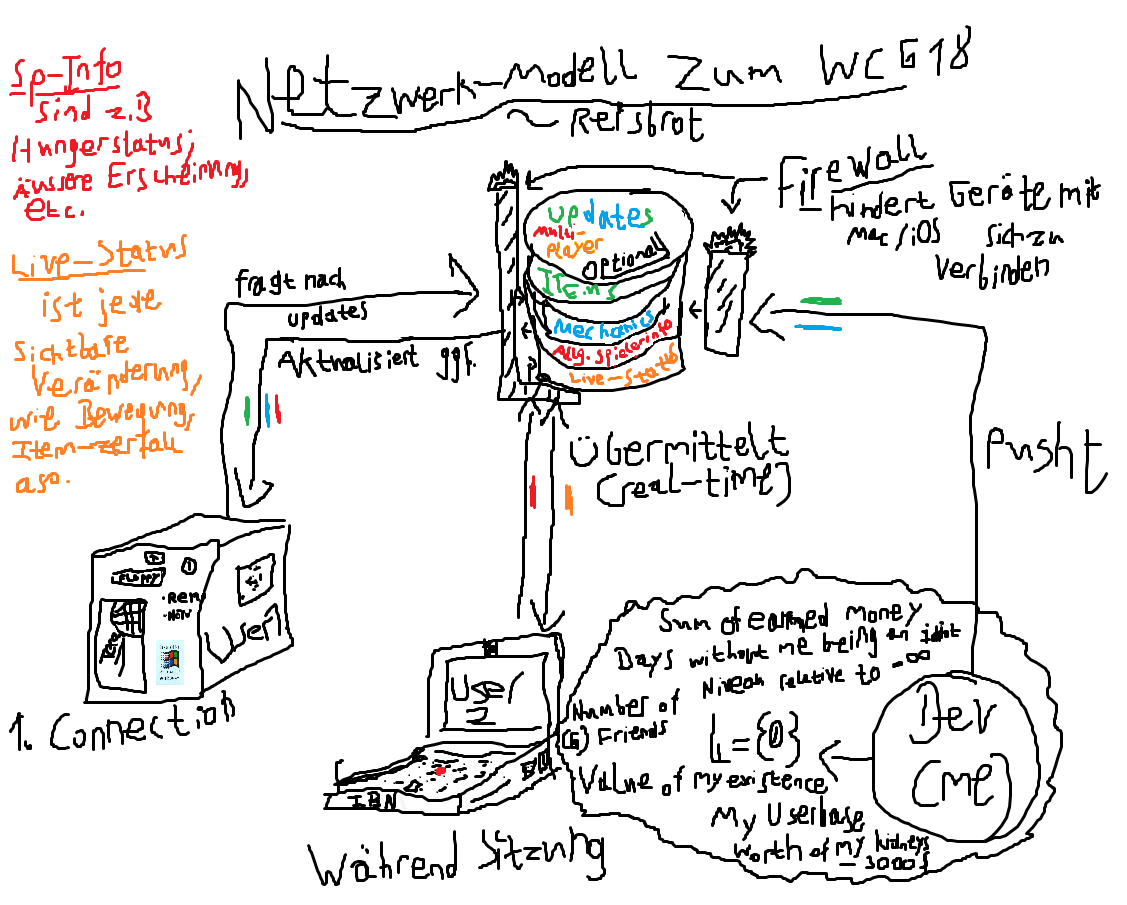 Netzwerk-Modell zum WCG18
~ Reisbrot
Sp-Info
sind z.B
Hungerstatus,
äussere Erscheinung,
etc.
Live-Status
ist jede
Sichtbare
Veränderung,
wie Bewegung,
Item-zerfall
aso.
Firewall
hindert Geräte mit
Mac/iOS sich zu
verbinden
updates
Multi-
player
(optional)
Items
Mechanics
Allg. Spielerinfo
Live-Status
fragt nach
updates
Aktualisiert ggf.
Übermittelt
(real-time)
Pusht
FLOPPY
User1
1. Connection
User
2
IBN
Während Sitzung
Sum of earned money
Days without me being an idiot
Niveau relative to -∞
Number of
(G) Friends
L={0}
Value of my existence
My Userbase
Worth of my kidneys
- 3000f
Dev
(me)